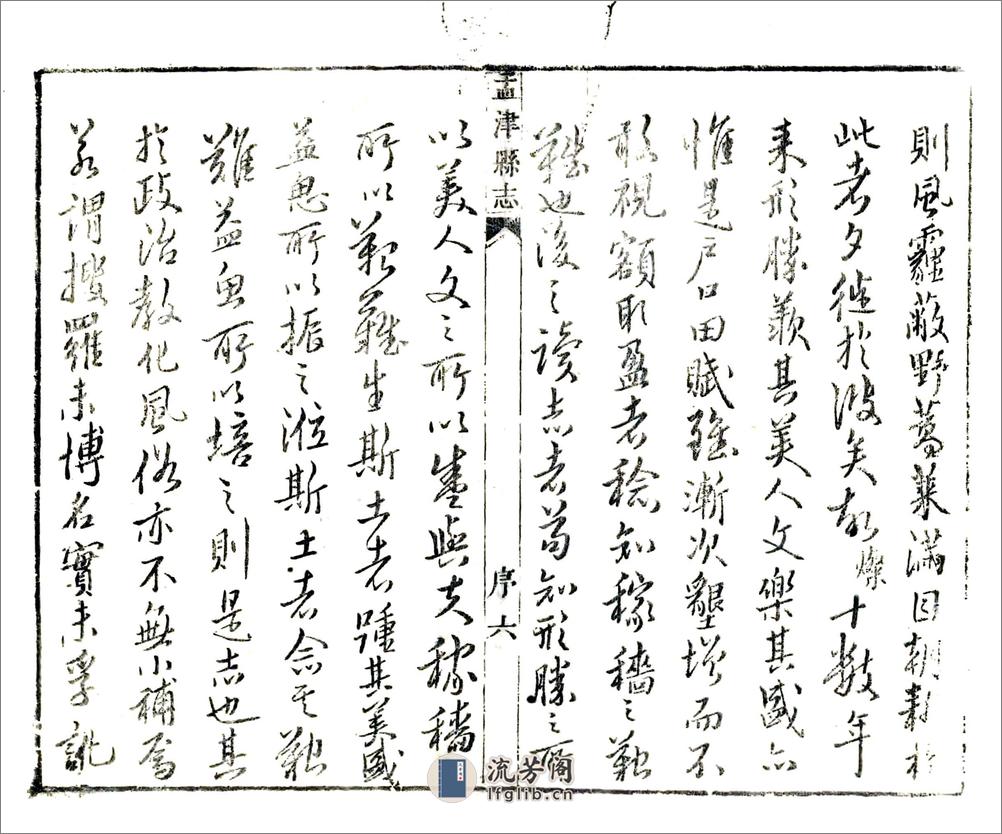 則風霾蔽野蒿萊滿目朝耕於
此者夕徙於彼矣故燦十數年
来形勝羡其美人文樂其盛亦
惟是戶口田賦雖漸次墾增而不
敢視額取盈者稔知稼穡之艱
難也後之讀志者苟知形勝之所
孟津縣志
序 六
以美人文之所以盛與夫稼穡
所以艱難生斯土者踵其美盛
益思所以振之涖斯土者念其艱
難益思所以培之則是志也其
於政治教化風俗亦不無小補焉
若謂搜羅未博名實未孚訛
流芳阁
lfglib.cn